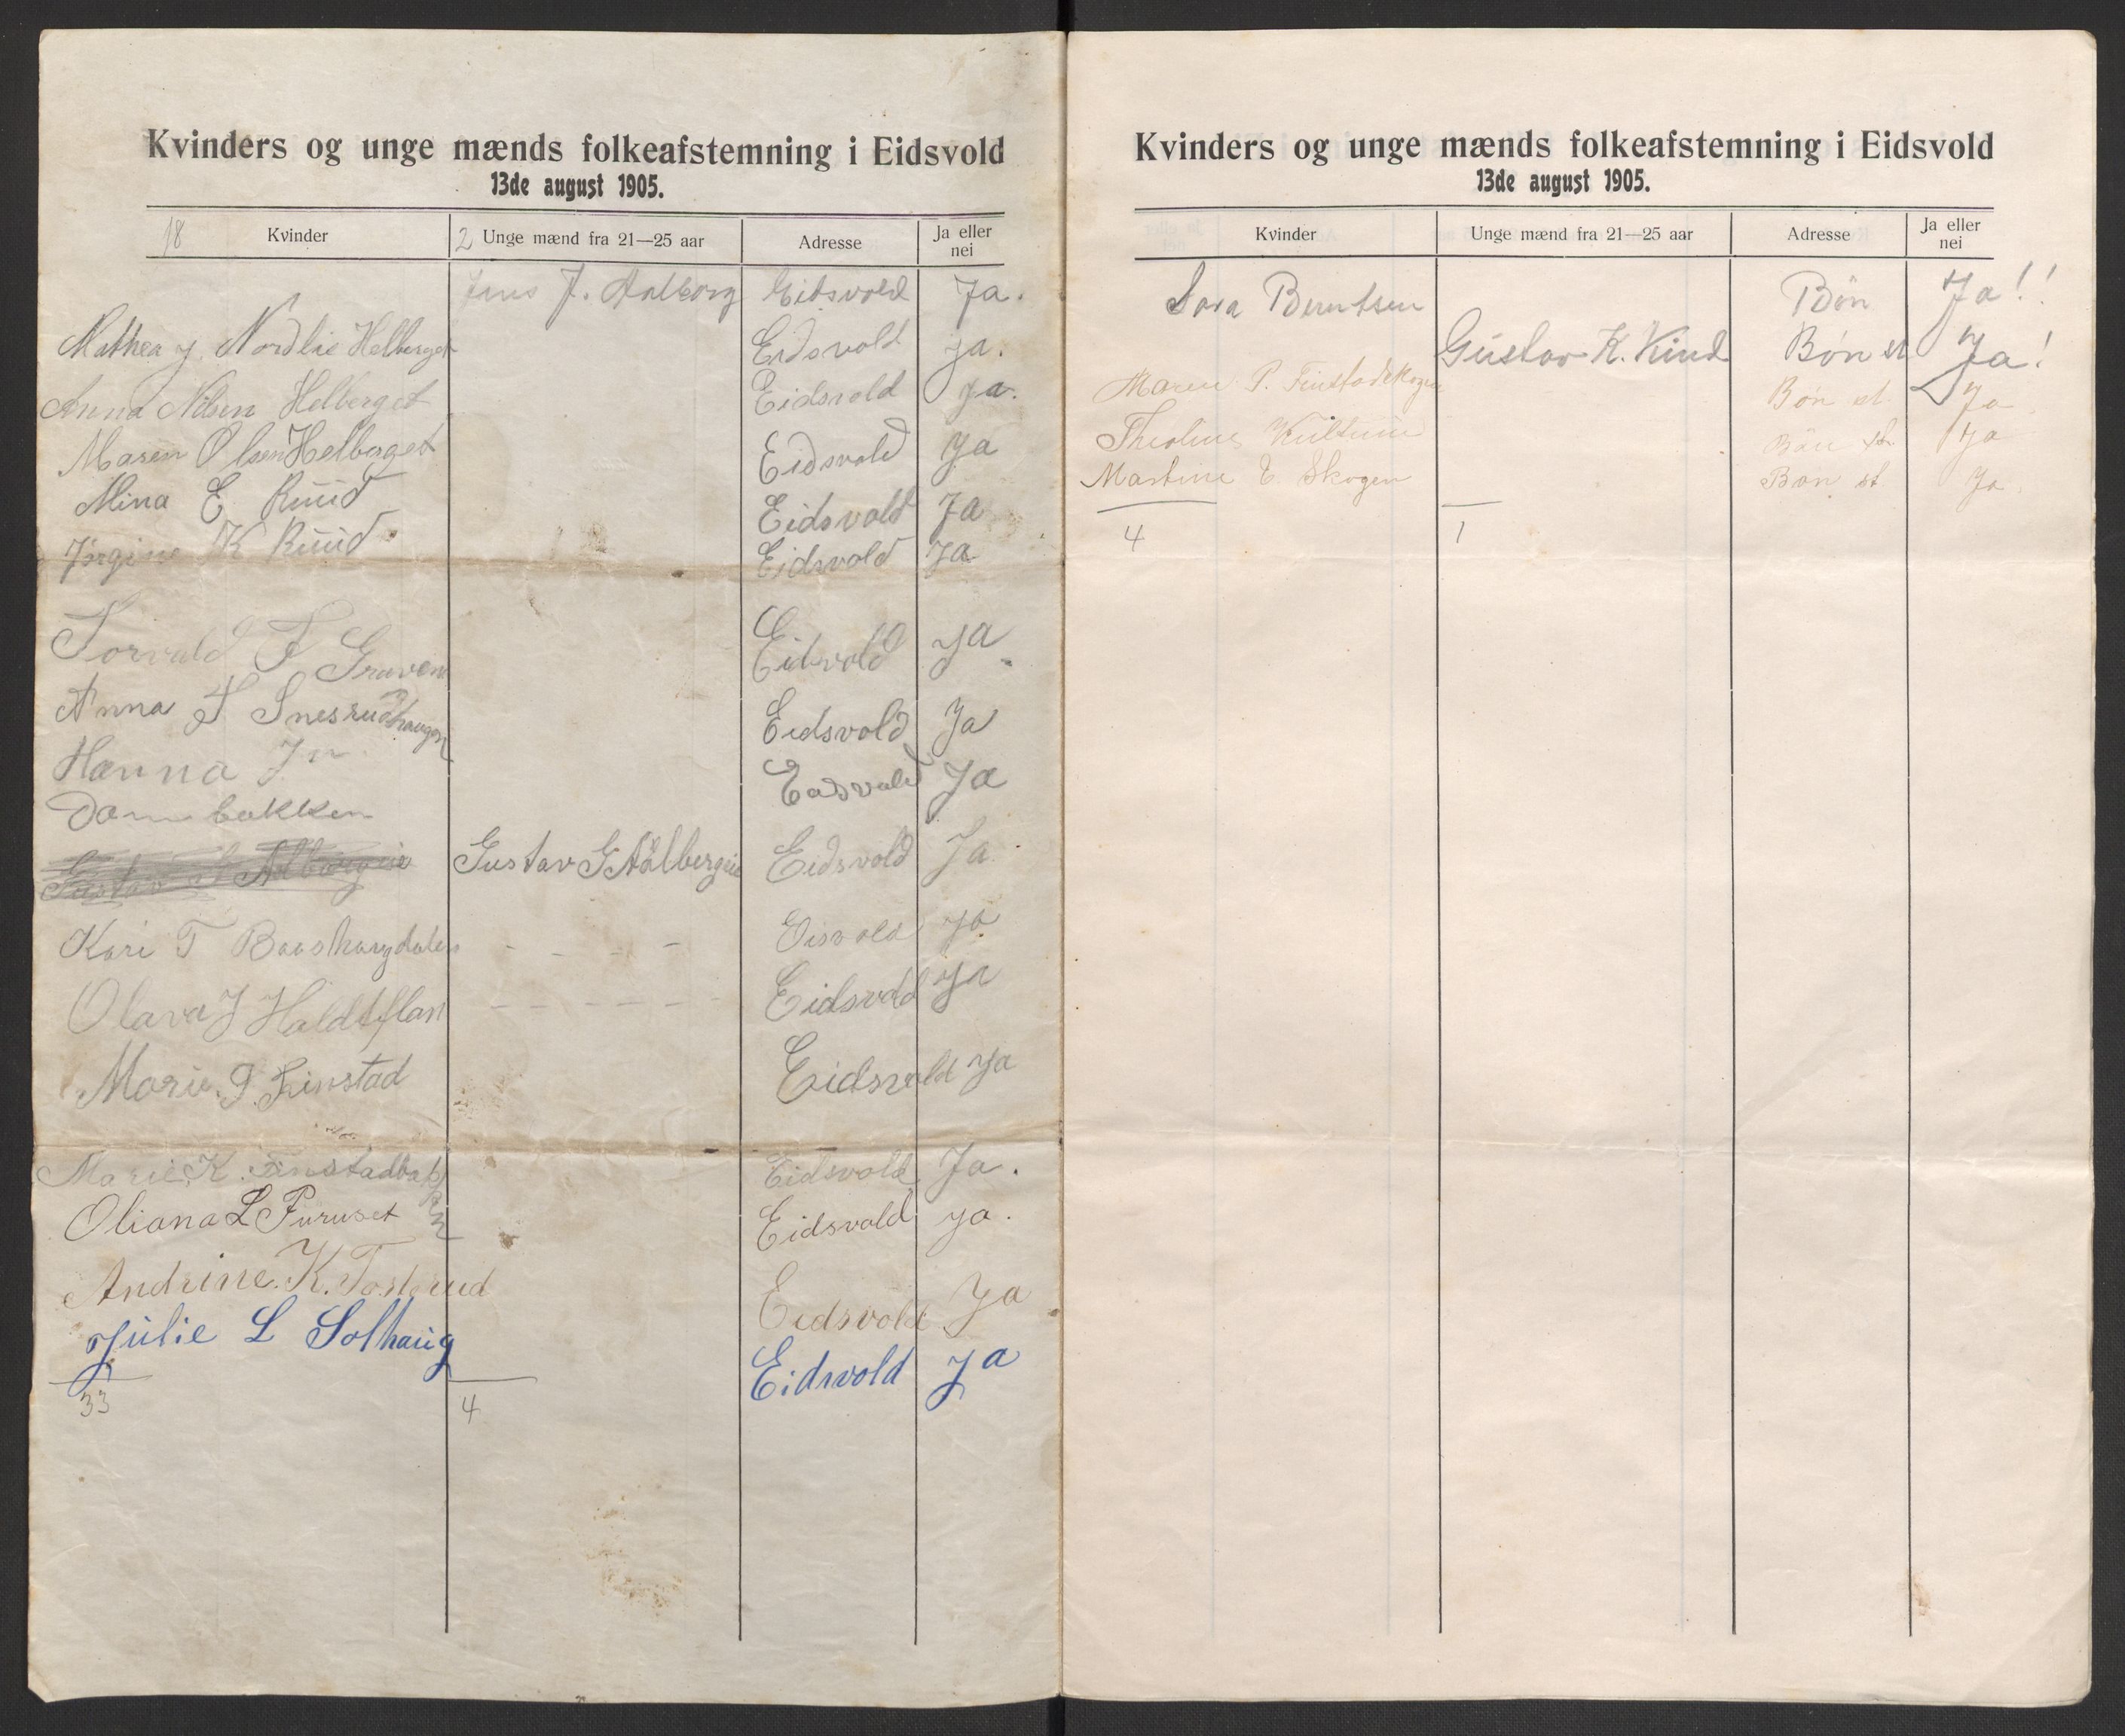 Kvinders og unge mænds folkeafstemning i Eidsvold
13de august 1905.
18 Kvinder 2 Unge mænd fra 21—25 aar Adresse Ja eller nei
Jens J. Aalborg Eidsvold Ja.
Mathea J. Nordlie Helberget Eidsvold Ja.
Anna Nilsen Helberget Eidsvold Ja.
Maren Olsen Helberget Eidsvold Ja
Mina E Ruud Eidsvold Ja
Jørgine K Ruud Eidsvold Ja
Torvald F Graven Eidsvold Ja
Anna Snesrudhaugen Eidsvold Ja
Hanna Eidsvold Ja
Dambakken
Gustav Aalborgeie Gustav G Aalbergeie Eidsvold Ja
Kari T Baashaugdalen Eisvold Ja
Olava J Eidsvold Ja
Marie. Finstad Eidsvold Ja
Marie. K. Finstadbakken Eidsvold Ja.
Oliana L Furuset Eidsvold Ja.
Andrine. K. Eidsvold Ja
Julie L Solhaug Eidsvold Ja
33 4
Kvinders og unge mænds folkeafstemning i Eidsvold
13de august 1905.
Kvinder Unge mænd fra 21—25 aar Adresse Ja eller nei
Sara Berntsen Bøn Ja!!
Gustav K. Kind Bøn st Ja!
Maren P. Finstadskogen Bøn st. Ja
Bøn st Ja
Martine E Skogen Bøn st Ja.
4 1